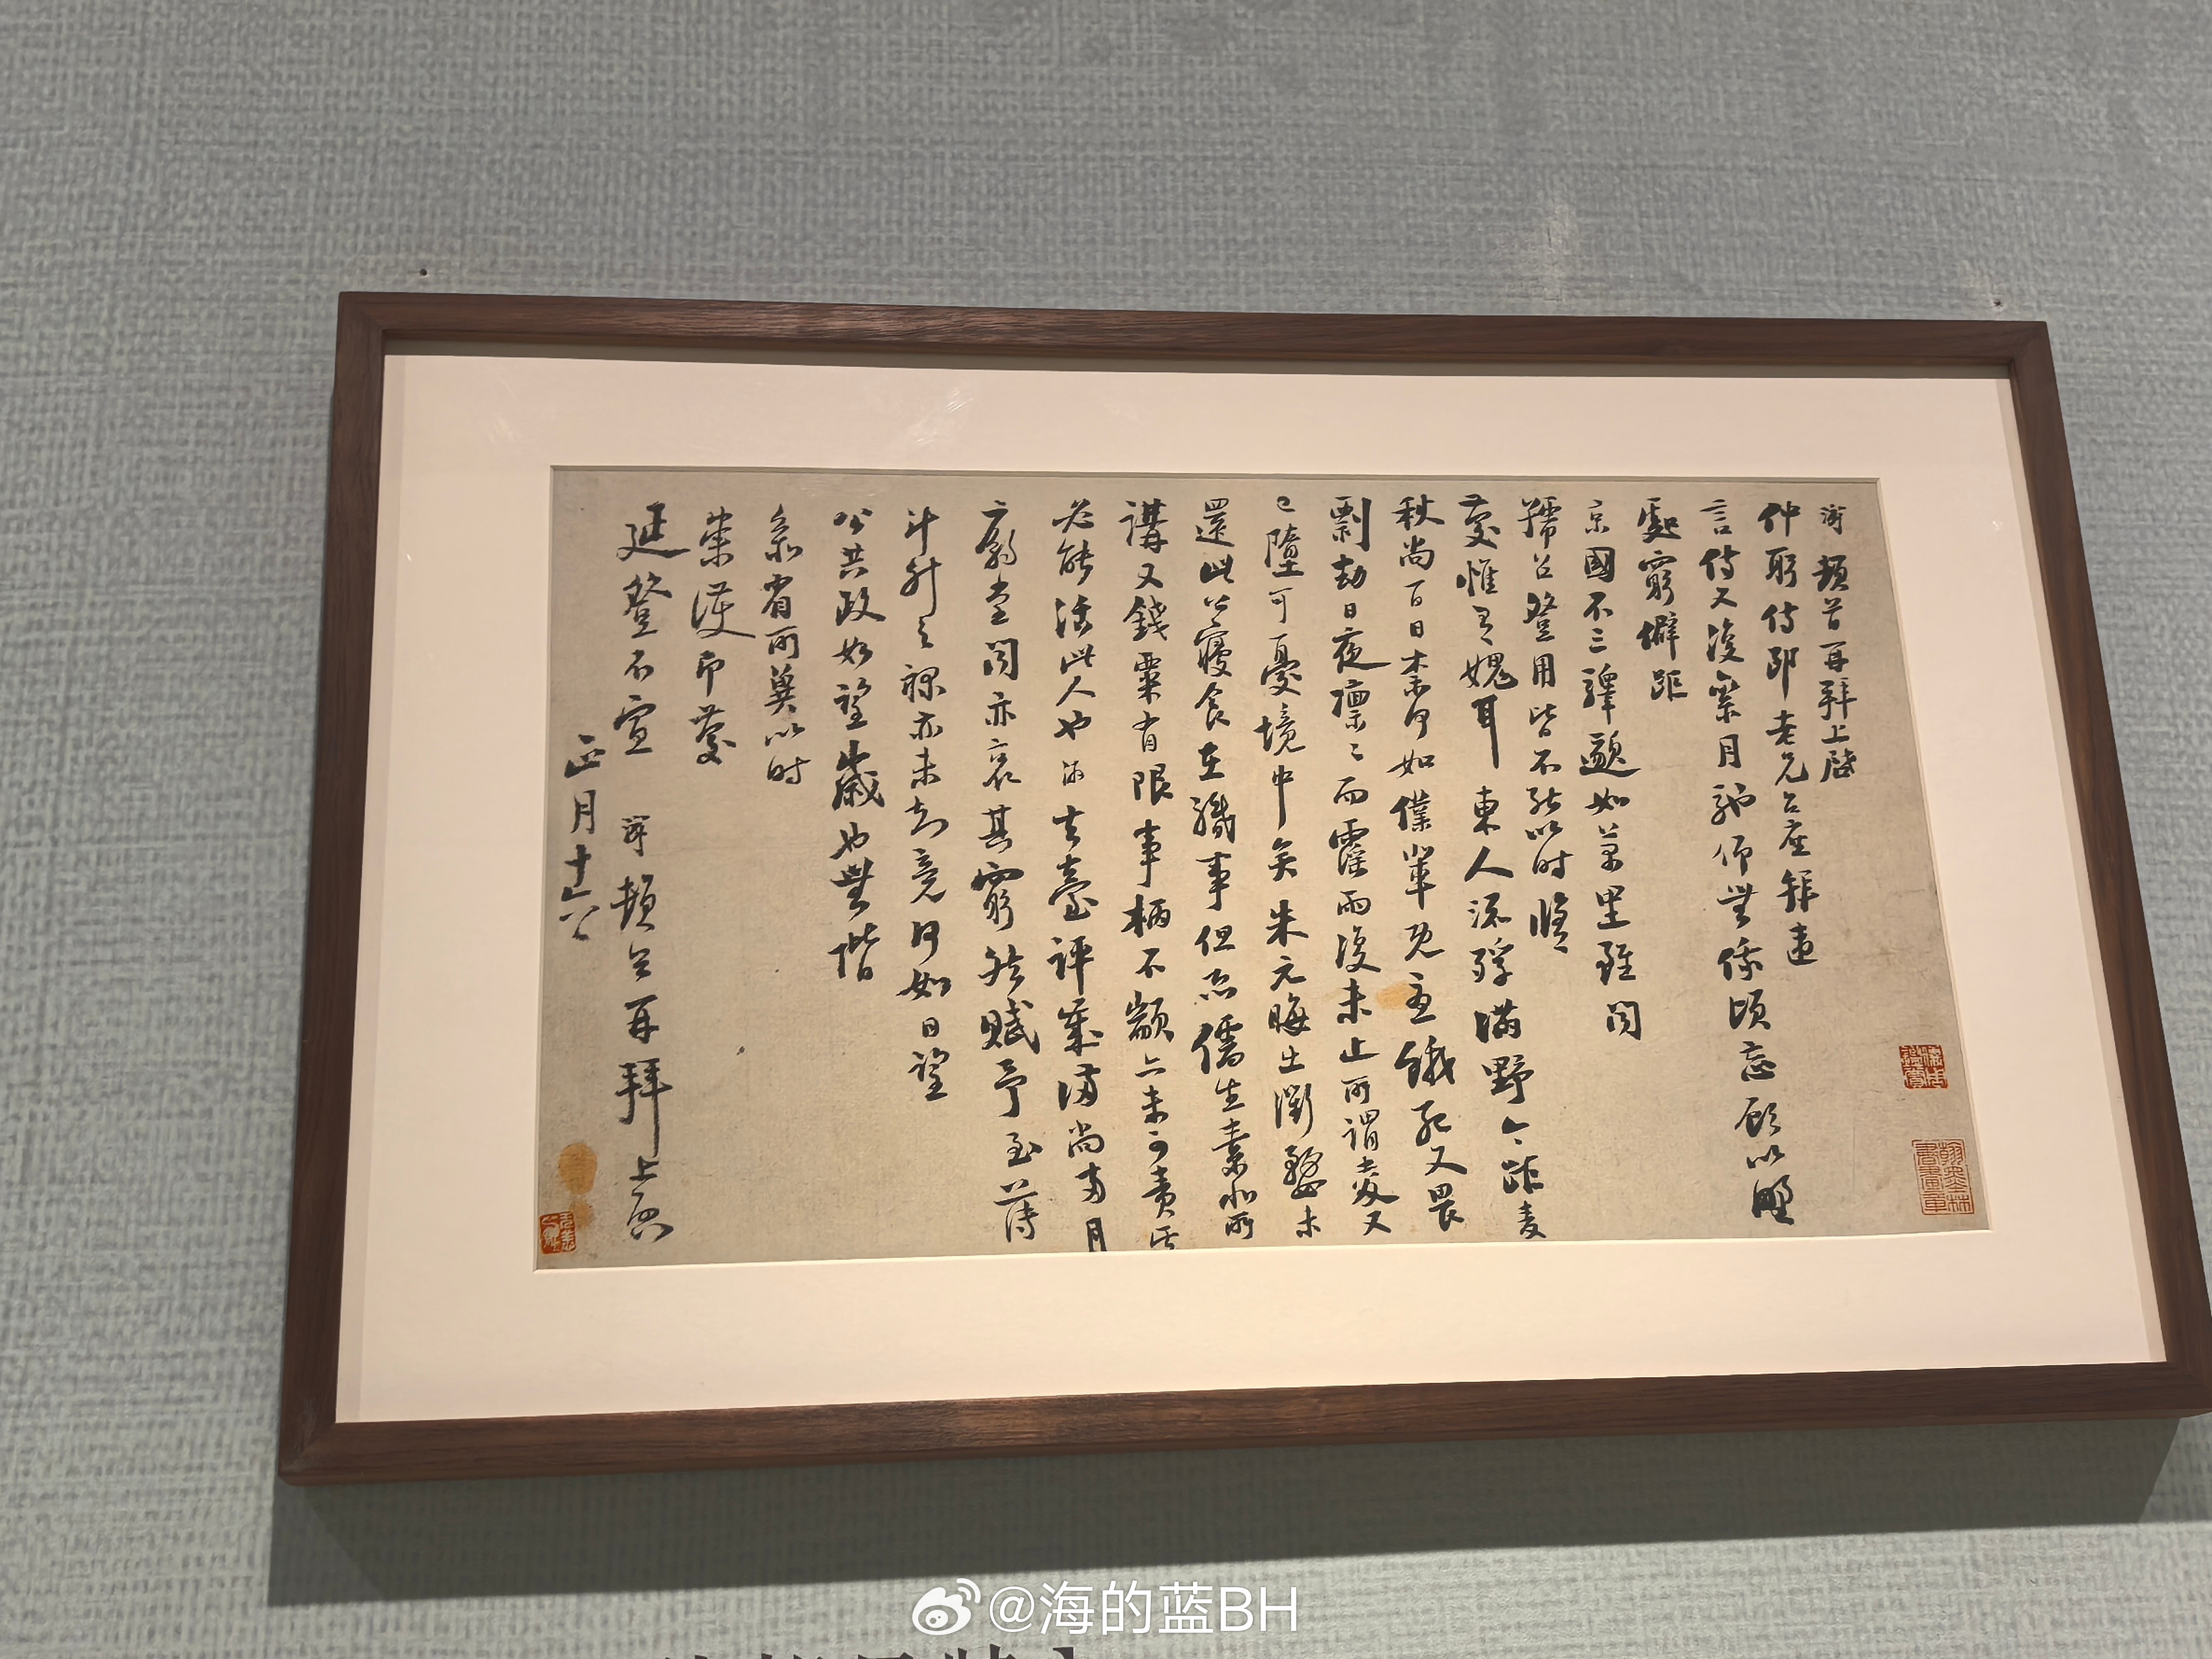 游頓首再拜上啓
仲躬侍郎老兄台座拜違
言侍又復累月馳仰無俟頃忘顧以野
處窮僻距
京國不三驛邈如萬里雖聞
孺召登用皆不能以時脩
慶惟有媿耳東人流殍滿野今距麥
秋尚百日奈何如僕輩既憂餓死又畏
剽劫日夜凜凜而霪雨復未止所謂麥又
已墮可憂境中矣朱元晦出衢婺未
還此公寢食在職事但恐儒生素非所
講又錢粟有限事柄不顓亦未可責其
必能活此人也游去臺評歲滿尚兩月
廟堂聞亦哀其窮然賦予至薄
斗升之祿亦未知竟何如日望
公共政如望歲也無階
參省所冀以時
崇護即慶
延登不宣 游頓首再拜上啓
正月十六日
@海的蓝BH